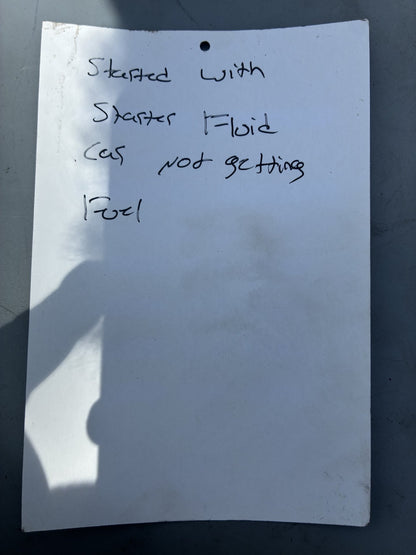 Started with
Starter Fluid
Car not getting
Fuel